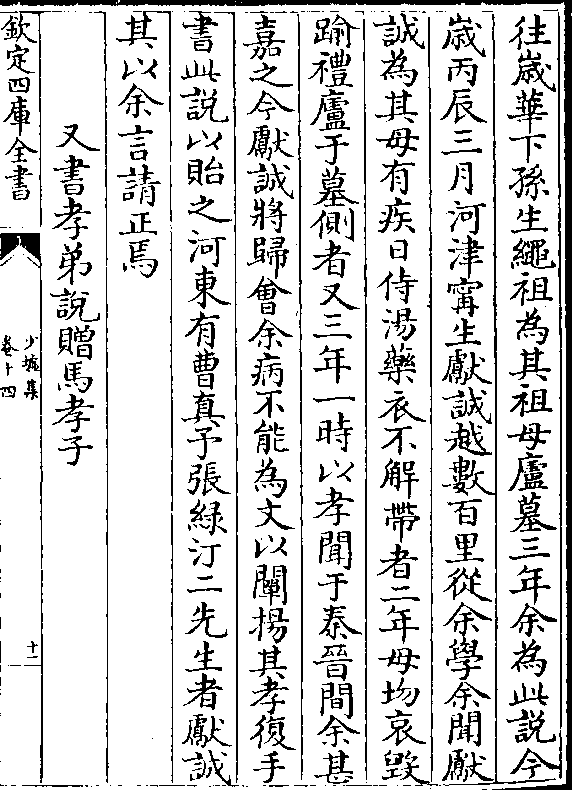 往嵗華下孫生繩祖為其祖母廬墓三年余為此説今
嵗丙辰三月河津甯生獻誠越數百里從余學余聞獻
誠為其母有疾日侍湯藥衣不解帶者二年母歾哀毀
踰禮廬于墓側者又三年一時以孝聞于秦晉間余甚
嘉之今獻誠將歸會余病不能為文以闡揚其孝復手
書此説以貽之河東有曹真予張緑汀二先生者獻誠
其以余言請正焉
又書孝弟説贈馬孝子
欽定四庫全書
少墟集
卷十四
十二